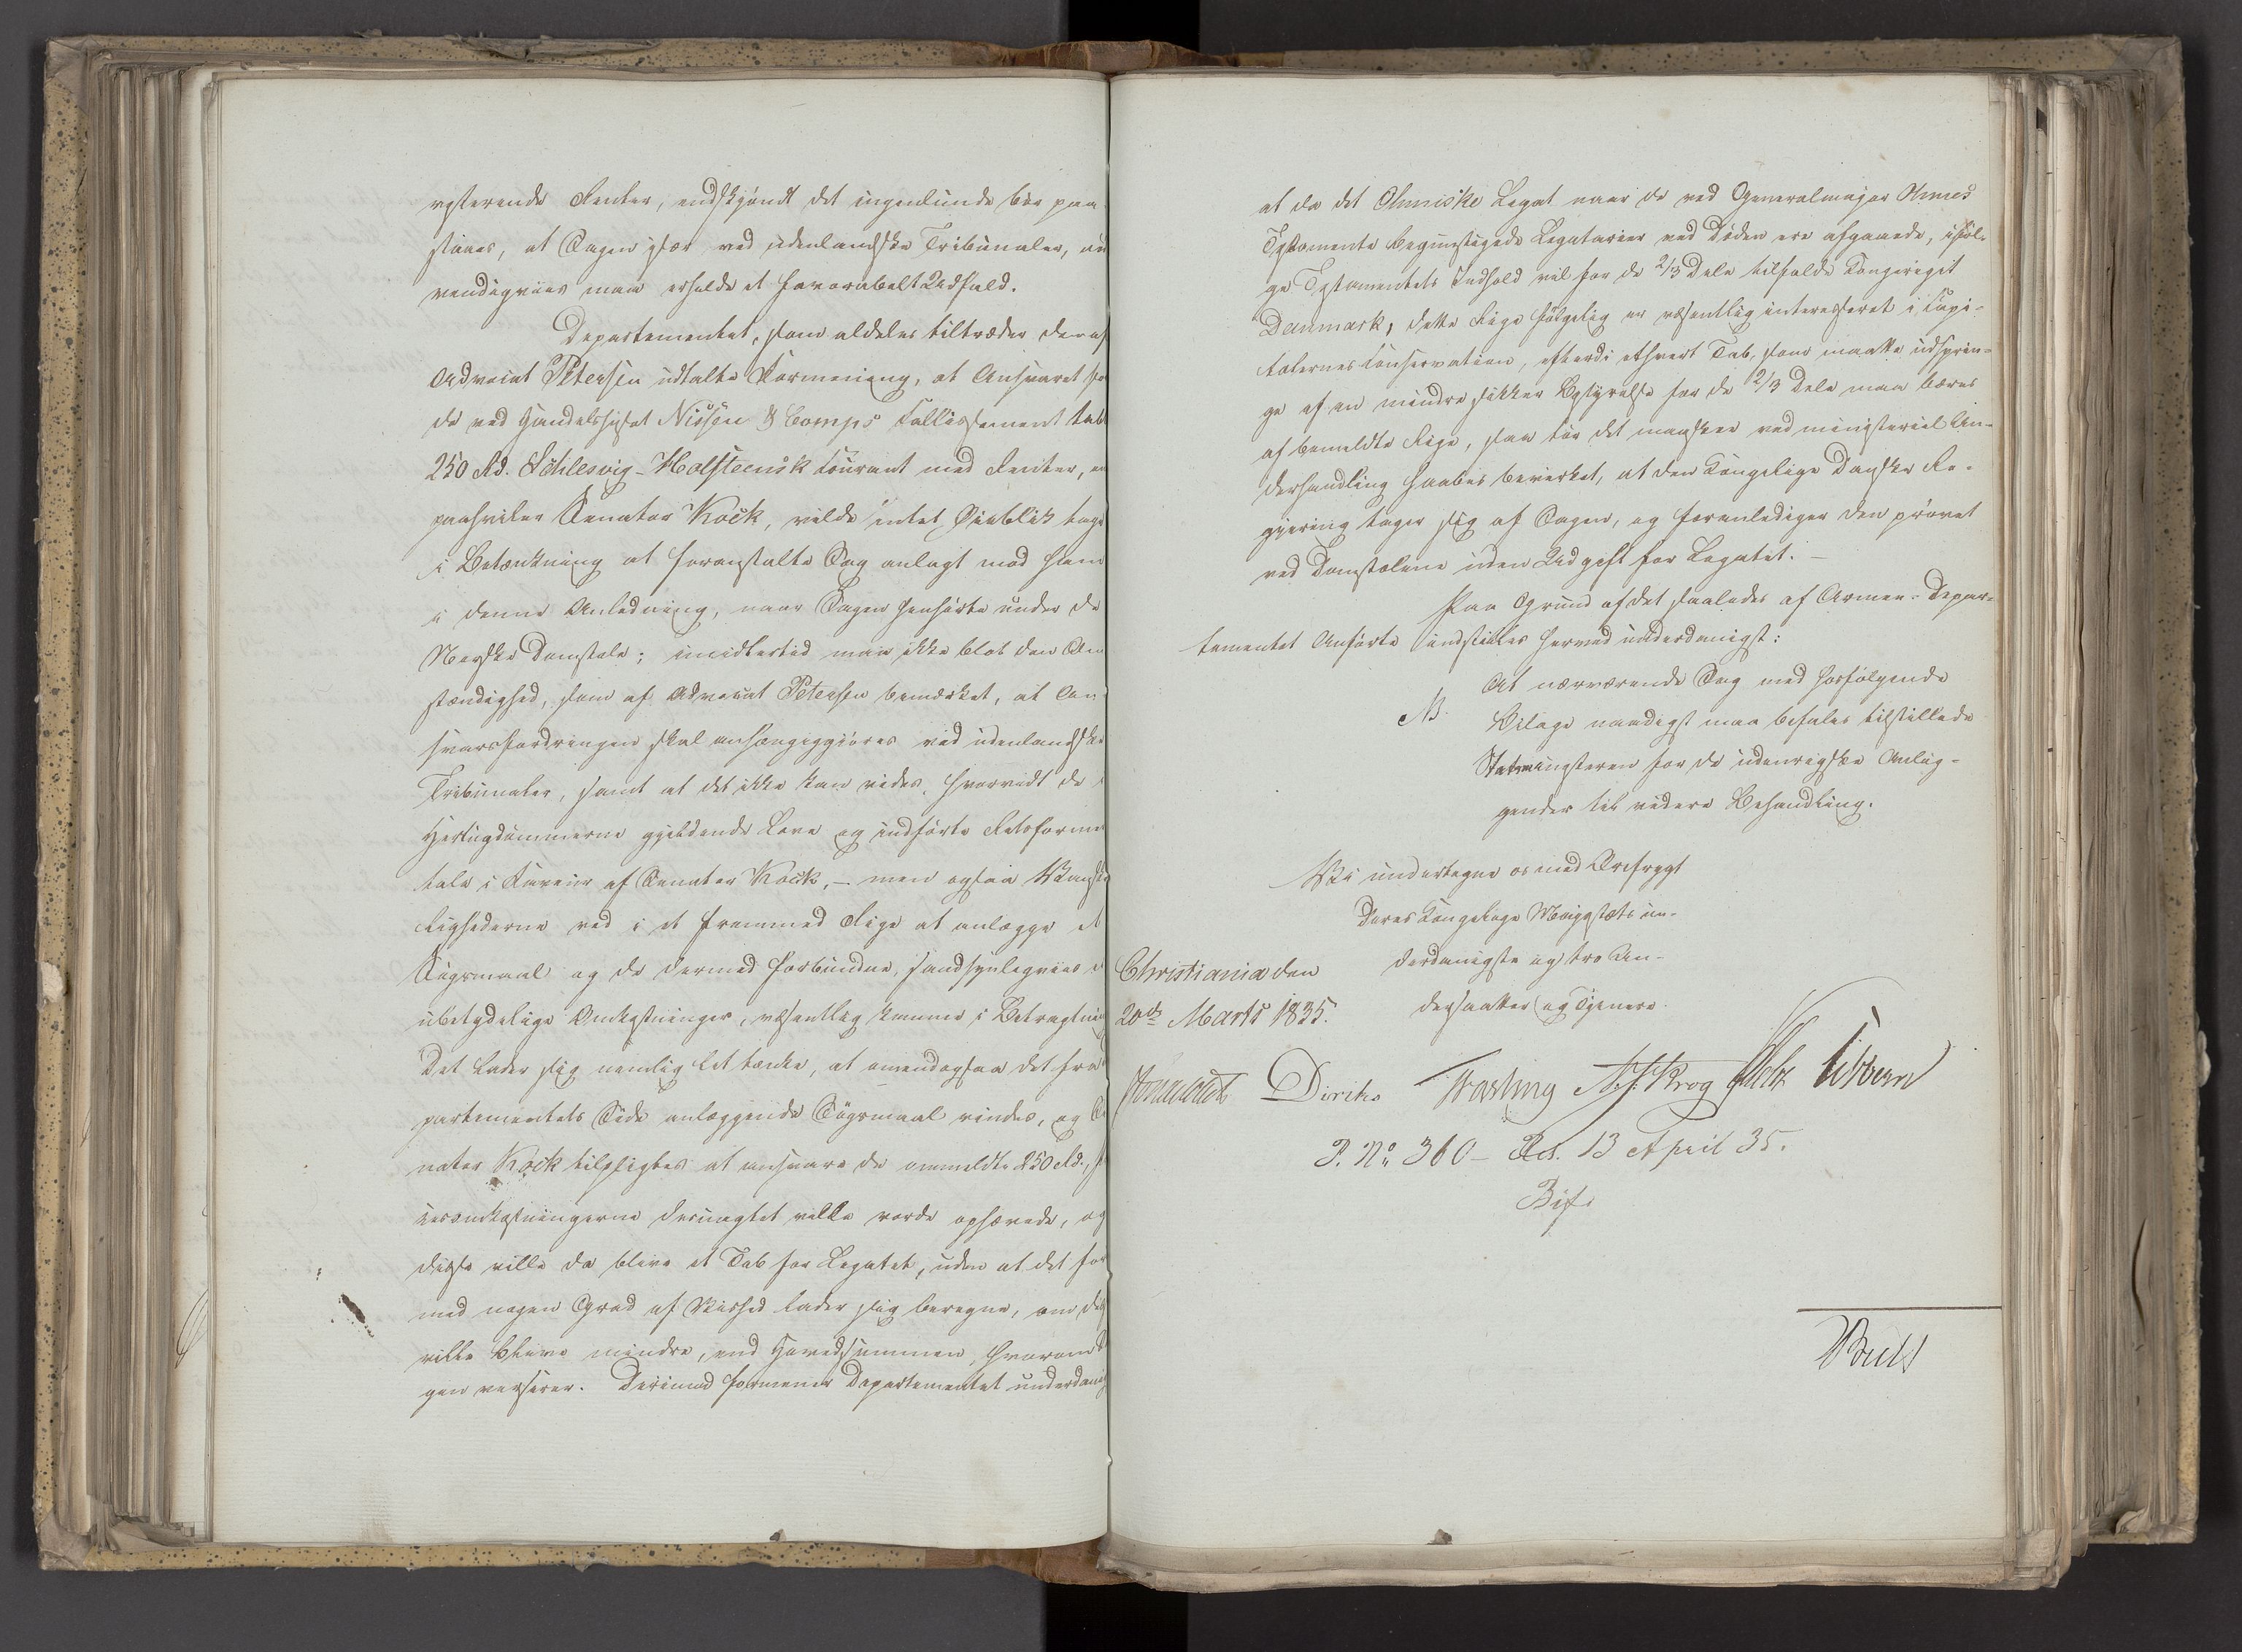 resterende Renter, endskjøndt det ingenlunde bør paa-
staaes, at Sagen især ved udenlandske Tribunaler, nød
vendigviis maa erholde et favorabelt Udfald.
Departementet, som aldeles tiltræder den af
Advocat Petersen udtalte Formening, at Ansvaret for
de ved Handelshuset Nissen & Comps Fallissement tabte
250 Rd. Schlesvig-Holsteensk Courant med Renter, er
paahviler Senator Kock, vilde intet Øieblik tage
i Betænkning at foranstalte Sag anlagt mod ham
i denne Anledning, naar Sagen henhørte under de
Norske Domstole; imidlertid maa ikke blot den Om
stændighed, som af Advocat Petersen bemærket, at An
svarsfordringen skal anhængiggjøres ved udenlandske
Tribunaler, samt at det ikke kan vides, hvorvidt de i
Hertugdømmerne gjeldende Love og indførte Retsformer
tale i Faveur af Senator Kock, – men ogsaa Vanske
lighederne ved i et fremmed Rige at anlægge et
Søgsmaal og de dermed forbundne, sandsynligviis ei
ubetydelige Omkostninger, væsentlig komme i Betragtning
Det lader sig nemlig let tænke, at omendogsaa det fra De
partementets Side anlæggende Søgsmaal vindes, og Se
nator Kock tilpligtes at ansvare de ommeldte 250 Rd.,
cesomkostningerne desuagtet ville vorde ophævede, og
disse ville da blive et Tab for Legatet, uden at det for
med nogen Grad af Vished lader sig beregne, om det
ville blive mindre, end Hovedsummen, hvorom Sa
gen verserer. Derimod formener Departementet underdanigst
at da det Ohmeiske Legat naar de ved Generalmajor Ohmes
Testamente begunstigede Legatarier ved Døden ere afgaaede, iføl-
ge Testamentets Indhold vil for de 2/3 Dele tilfalde Kongeriget
Danmark, dette Rige følgelig er væsentlig interesseret i Capi-
talernes Conservation, efterdi ethvert Tab, som maatte udsprin-
ge af en mindre sikker Bestyrelse for de 2/3 Dele maa bæres
af bemeldte Rige, saa tør det maaskee ved ministeriel Un-
derhandling haabes bevirket, at den Kongelige Danske Re-
gjering tager sig af Sagen, og foranlediger den prøvet
ved Domstolene uden Udgift for Legatet. –
Paa Grund af det saaledes af Armee-Depar-
tementet Anførte indstilles herved underdanigst:
At nærværende Sag med hosfølgende
NB. Bilage naadigst maa befales tilstillede
Statsministeren for de udenrigske Anlig-
gender til videre Behandling.
Vi undertegne os med Ærefrygt
Deres Kongelige Majestæts un-
derdanigste og tro Un-
dersaatter og Tjenere
Christiania den
20de Marts 1835.
Diriks Fasting A. f. Krog Sibbern
P. No 360 – Res. 13 April 35.
Bif.